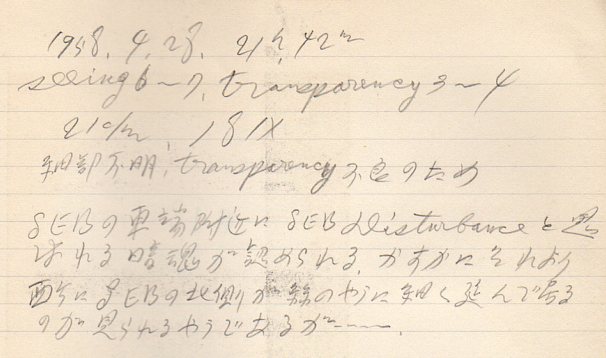 1958. 4. 28. 21h 42m
seeing 6~7, transparency 3~4
21cm, 181X
細部不明, transparency 不良のため
SEBの東端附近に SEB Disturbance と思
はれる暗塊が認められる. かすかにそれより
西方にSEBの北側が 紐のやうに細く延んで居る
のが見られるやうであるが――.